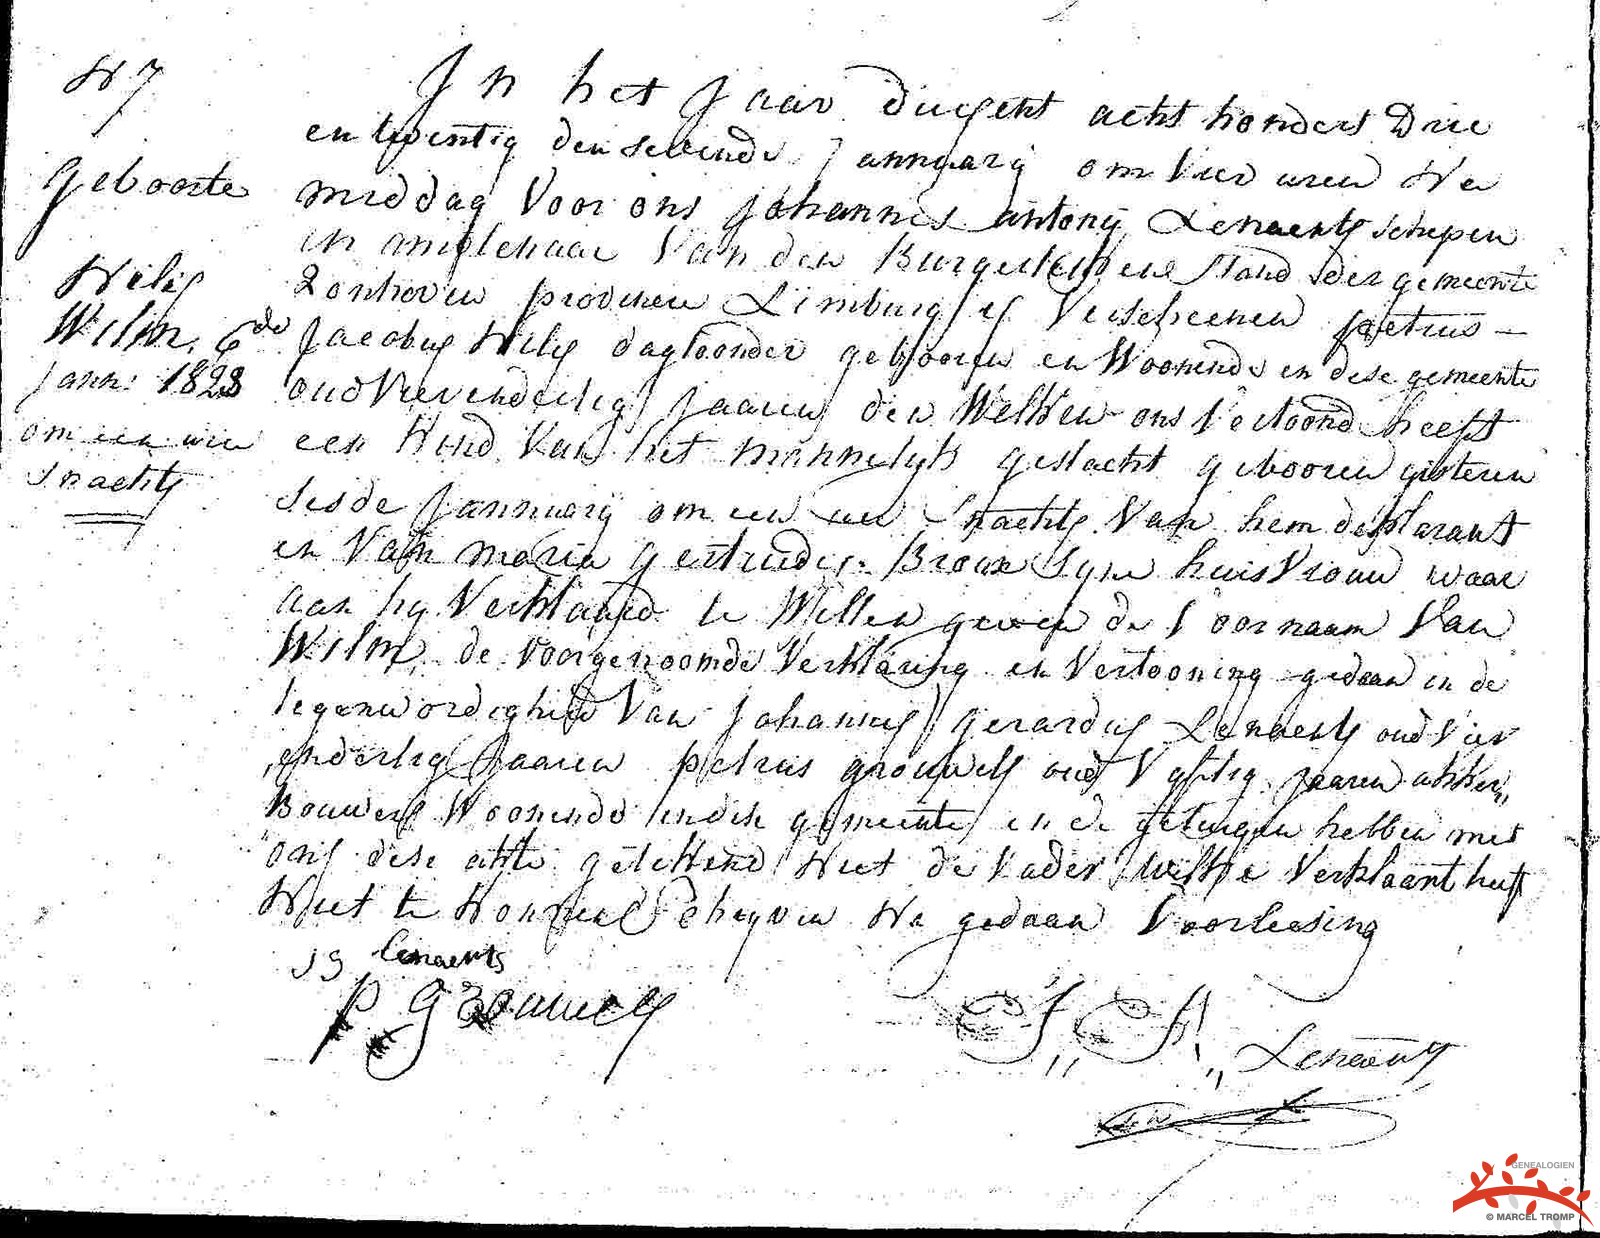 N 7
Geboorte
Nelis
Wilm. 6de
Jann: 1823
om een uren
snachts
In het Jaar duysent acht hondert Drie
en twentig den sevende Jannuarij om Vier uren Na
middag Voor ons Johannes antonij Lenaerts schepen
in amptenaar Van den Burgerleyken Stand der gemeente
Zonhoven provincie Limburg is Verscheenen petrus –
Jacobus Nelis dagloonder gebooren en Woonende en dese gemeente
oud Vierendertig Jaaren den Welken ons Vertoond heeft
een kind Van het mannelyk geslacht gebooren gisteren
sesde Jannuarij om een uer Snachts Van hem deklarant
en Van maria gertrudis Broux syne huisvrouw waar
aan hy Verklaard te Willen geven de Voornaam Van
Wilm. de Voorgenoomde Verklaring en Vertooning gedaan in de
tegenwordigheid Van Johannes Gerardus Lenaerts oud Vier
endertig Jaaren petrus grouwels oud Vyftig Jaaren akker,,
Bouwers Woonende in dese gemeente en de getuigen hebben met
ons dese akte getekend Niet de Vader Welke Verklaart heeft
Niet te konnen Schryven Na gedaan Voorleesing
J G Lenaerts
P Grouwels
J,, A,, Lenaerts
GENEALOGIEN
© MARCEL TROMP